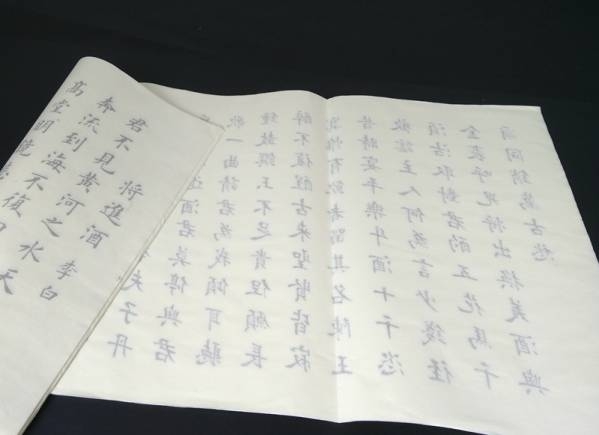 將進酒 李白
君不見黃河之水天
奔流到海不復回
高堂明鏡
夫子丹
進酒君莫停與君
歌一曲請君為我傾耳聽
鐘鼓饌玉不足貴但願長
醉不復醒古來聖賢皆寂
寞惟有飲者留其名陳王
昔時宴平樂斗酒十千恣
歡謔主人何為言少錢徑
須沽取對君酌五花馬千
金裘呼兒將出換美酒與
爾同銷萬古愁